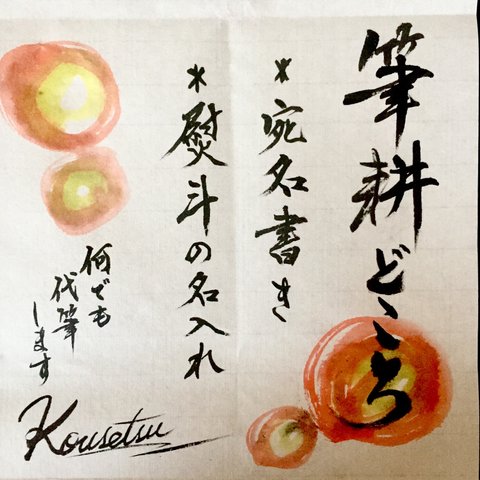 筆耕どころ
*宛名書き
*熨斗の名入れ
何でも
代筆
します
Kousetsu